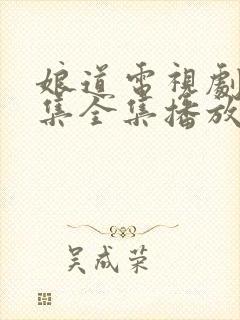 娘道電視劇
集全集播放
吴成荣